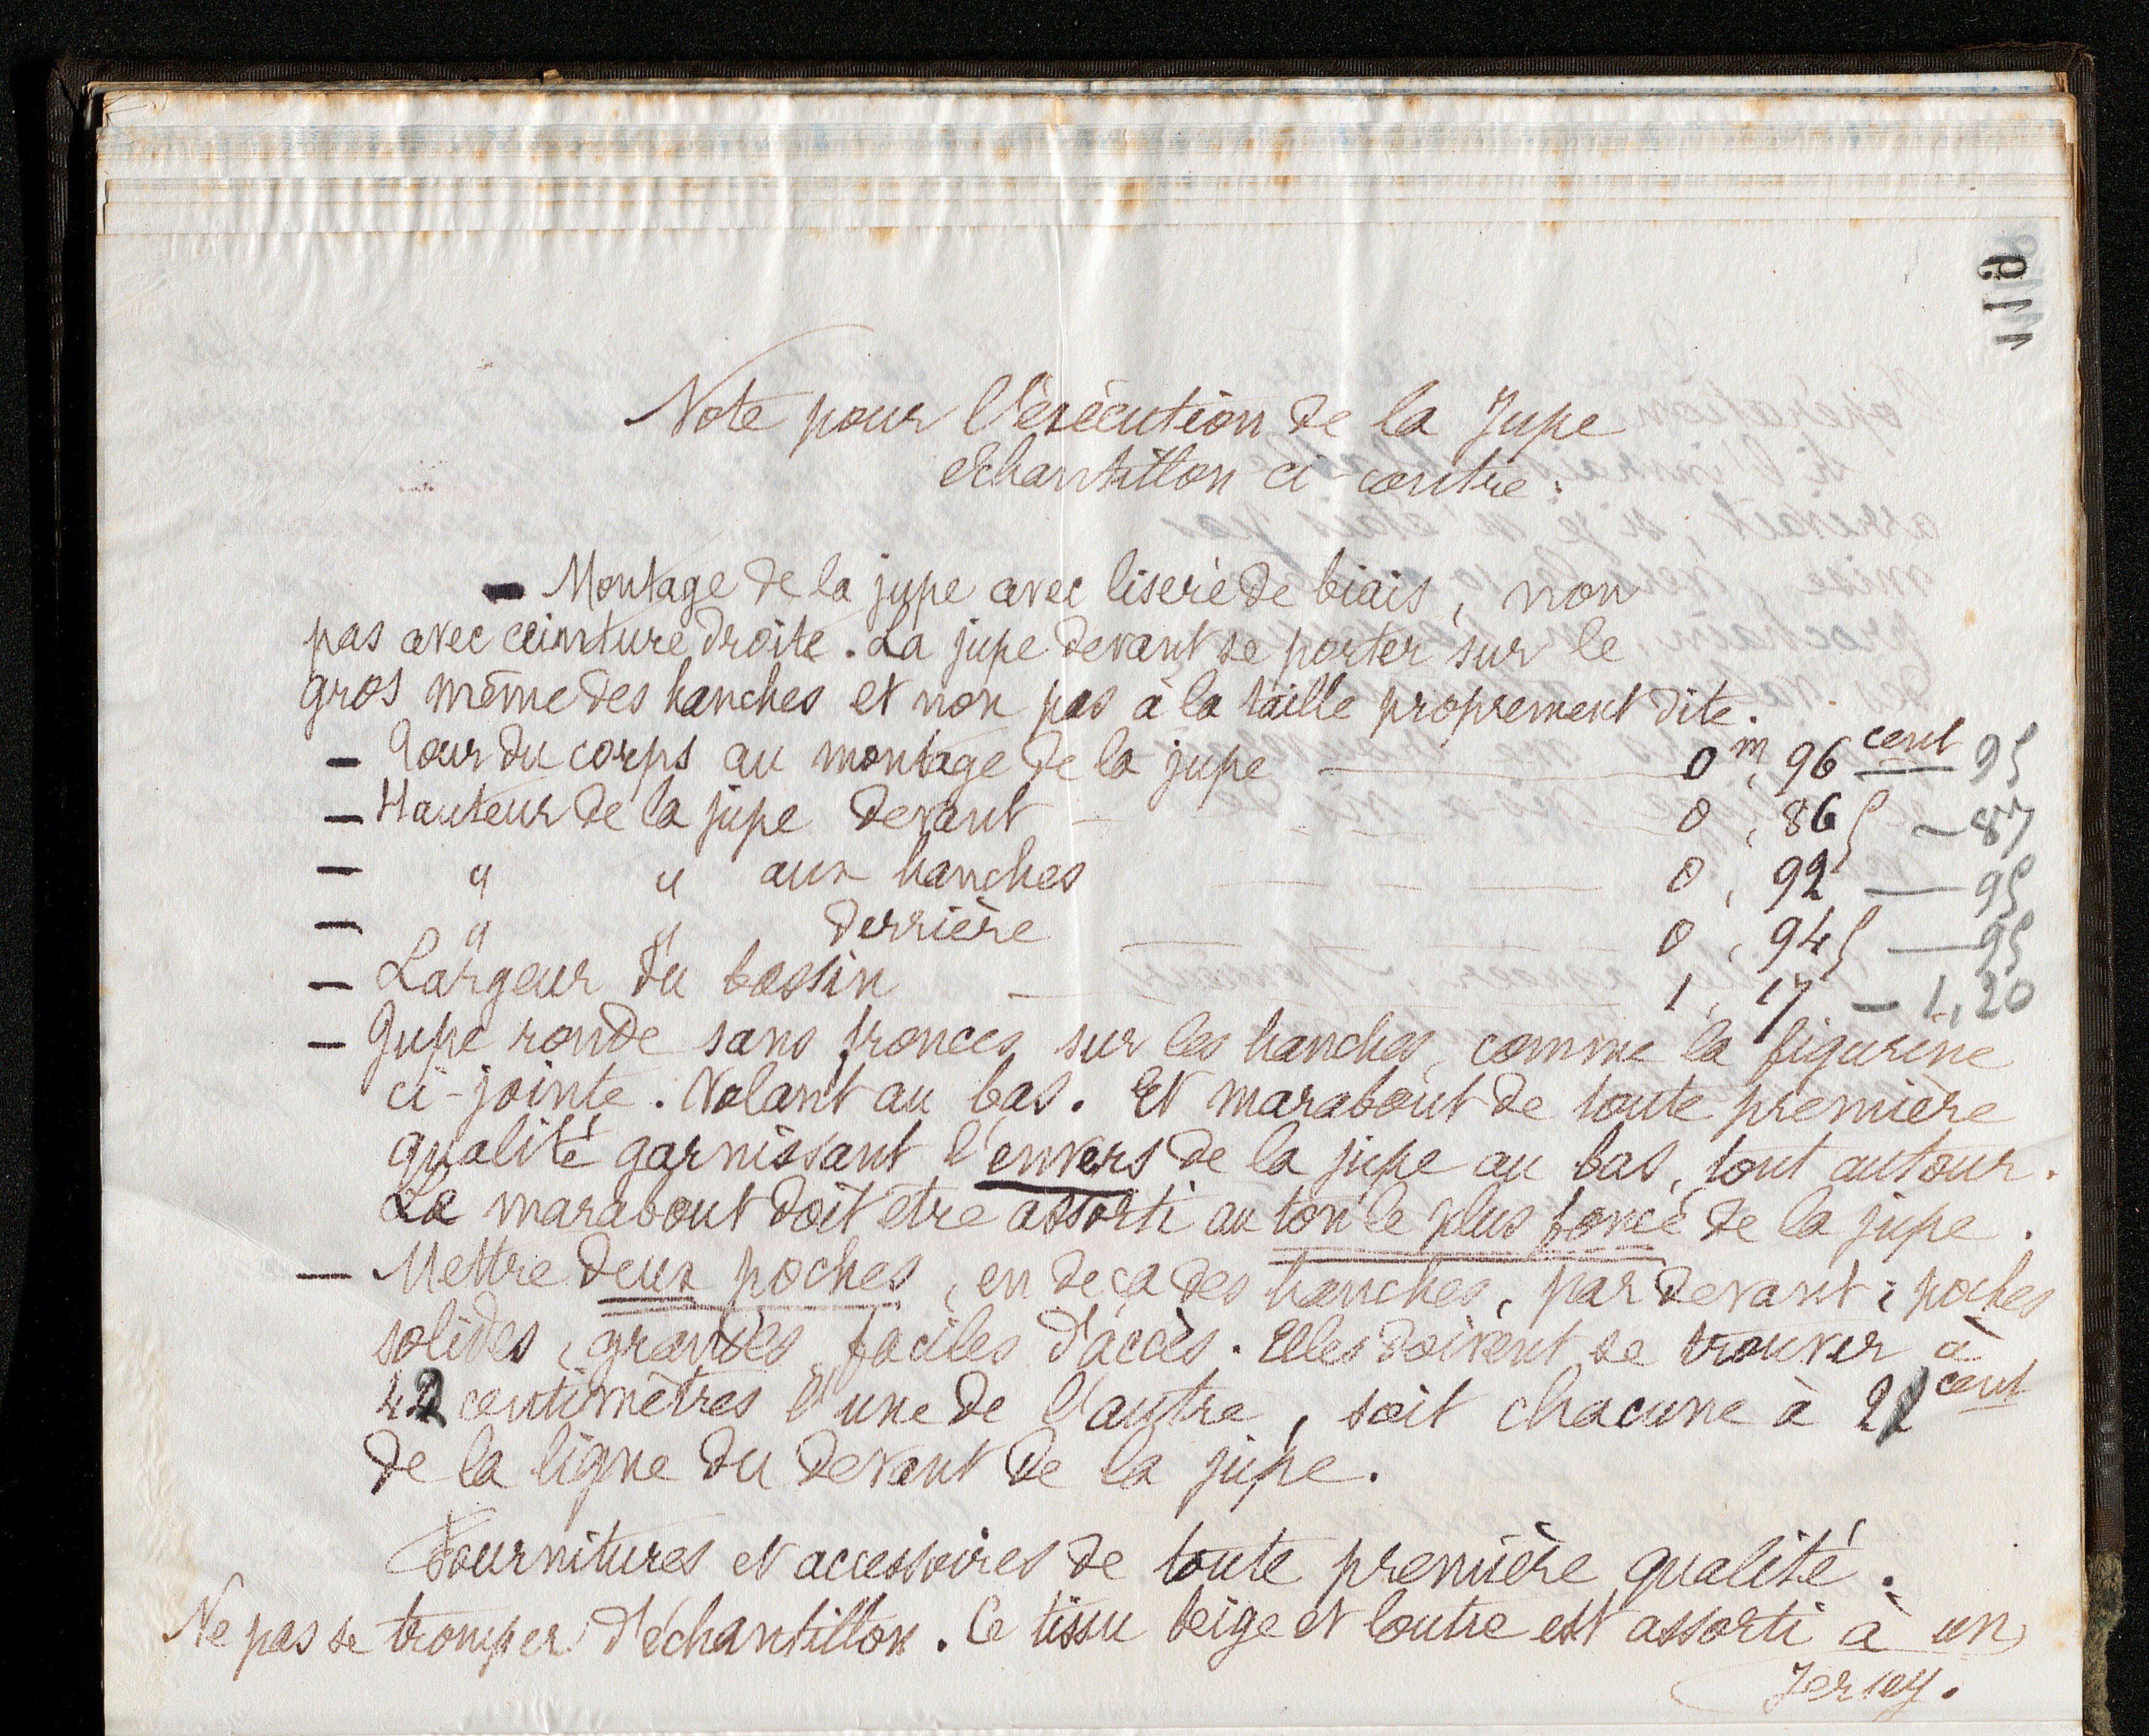 116
Note pour l'exécution de la Jupe
échantillon ci-contre :
- Montage de la jupe avec liseré de biais, non
pas avec ceinture droite. La jupe devant se porter sur le
gros même des hanches et non pas à la taille proprement dite.
- Tour du corps au montage de la jupe — 0 m, 96 cent — 95
- Hauteur de la jupe devant — 0, 86 — 87
- " " aux hanches — 0, 92 — 95
- " " derrière — 0, 94 — 95
- Largeur du bassin — 1, 17 — 1,20
- Jupe ronde sans fronces sur les hanches, comme la figurine
ci-jointe. Volant au bas. Et marabout de toute première
qualité garnissant l'envers de la jupe au bas, tout autour.
Le marabout doit être assorti au ton le plus foncé de la jupe.
- Mettre deux poches, en deça des hanches, par devant : poches
solides, grandes, faciles d'accès. Elles doivent se trouver à
42 centimètres l'une de l'autre, soit chacune à 21 cent
de la ligne du devant de la jupe.
Fournitures et accessoires de toute première qualité.
Ne pas se tromper d'échantillon. Ce tissu beige et loutre est assorti à un
Jersey.